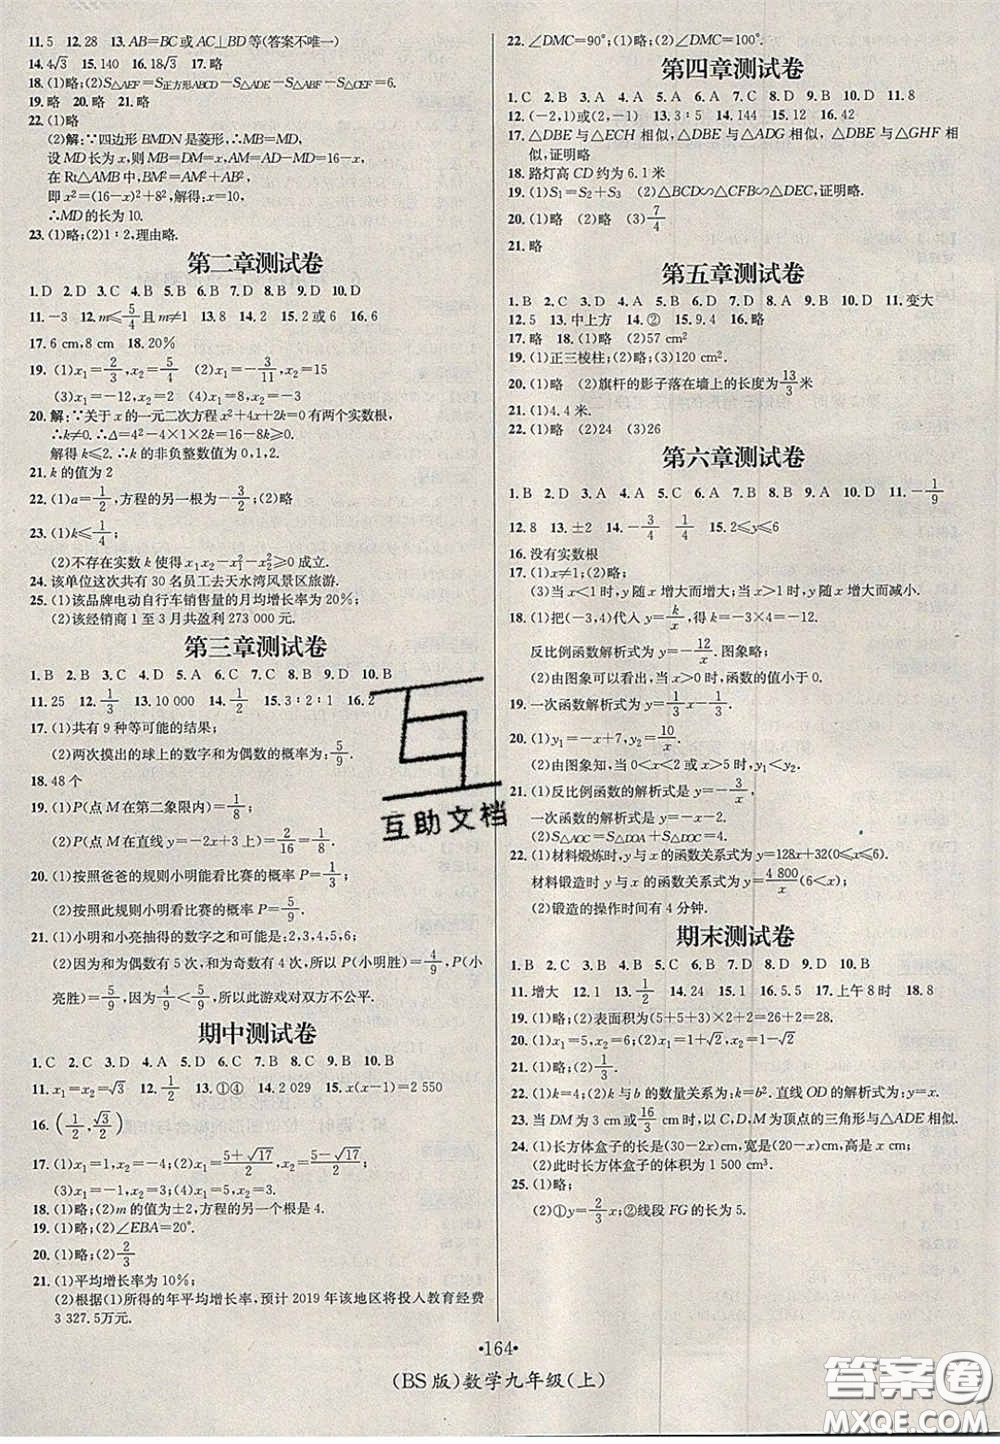 11.5 12.28 13.AB=BC或AC⊥BD等(答案不唯一)
14.4√3 15.140 16.18√3 17.略
18.(1)略;(2)S△AEF=S正方形ABCD-S△ABE-S△ADF-S△CEF=6.
19.略 20.略 21.略
22.(1)略
(2)解:∵四边形BMDN是菱形,∴MB=MD,
设MD长为x,则MB=DM=x,AM=16-x,
在Rt△AMB中,BM²=AM²+AB²,
即x²=(16-x)²+8²,解得:x=10,
∴MD的长为10.
23.(1)略;(2)1∶2,理由略.
第二章测试卷
1.D 2.D 3.C 4.B 5.B 6.B 7.B 8.D 9.D 10.D
11.-3 12.m≤5/4且m≠1 13.8 14.2 15.2或6 16.6
17.6 cm,8 cm 18.20%
19.(1)x₁=2/3,x₂=5/4 (2)x₁=-3/11,x₂=15
(3)x₁=-12,x₂=16 (4)x₁=1,x₂=8
20.解:∵关于x的一元二次方程x²+4x+2k=0有两个实数根,
∴k≠0.∴Δ=4²-4×1×2k=16-8k≥0,
解得k≤2.∴k的非负整数值为0,1,2.
21.k的值为2
22.(1)a=1/2,方程的另一根为-3/2;(2)略
23.(1)k≤1/4;
(2)不存在实数k使得x₁x₂-x₁²-x₂²≥0成立.
24.该单位这次共有30名员工去天水湾风景区旅游.
25.(1)该品牌电动自行车销售量的月均增长率为20%;
(2)该经销商1至3月共盈利273 000元.
第三章测试卷
1.B 2.B 3.C 4.D 5.A 6.C 7.C 8.D 9.D 10.B
11.25 12.1/3 13.10 000 14.1/2 15.3∶2∶1 16.2
17.(1)共有9种等可能的结果;
(2)两次摸出的球上的数字和为偶数的概率为5/9.
18.48个
19.(1)P(点M在第二象限内)=1/8;
(2)P(点M在直线y=-2x+3上)=2/16=1/8.
20.(1)按照爸爸的规则小明能看比赛的概率P=1/3;
(2)按照此规则小明看比赛的概率P=5/9.
21.(1)小明和小亮抽得的数字之和可能是:2,3,4,5,6.
(2)因为和为偶数有5次,和为奇数有4次,所以P(小明胜)=4/9,P(小
亮胜)=5/9,因为4/9<5/9,所以此游戏对双方不公平.
期中测试卷
1.C 2.B 3.D 4.A 5.D 6.C 7.B 8.C 9.B 10.B
11.x₁=x₂=√3 12.1/2 13.①④ 14.2 029 15.x(x-1)=2 550
16.(1/2,√3/2)
17.(1)x₁=1,x₂=-2 (2)x₁=(5+√17)/2,x₂=(5-√17)/2;
(3)x₁=-1,x₂=3; (4)x₁=-4,x₂=5
18.(1)略;(2)m的值为±2,方程的另一个根是4.
19.(1)略;(2)∠EBA=20°.
20.(1)略;(2)2/3
21.(1)平均增长率为10%;
(2)根据(1)所得的年平均增长率,预计2019年该地区将投入教育经费
3 327.5万元.
22.∠DMC=90°;(1)略;(2)∠DMC=100°.
第四章测试卷
1.C 2.B 3.A 4.B 5.A 6.A 7.C 8.D 9.D 10.D 11.8
12.(-2,1)或(2,-1) 13.3∶5 14.144 15.12 16.42
17.△DBE与△ECH相似,△DBE与△ADG相似,△DBE与△GHF相
似,证明略
18.路灯高CD约为6.1米
19.(1)S₁=S₂+S₃ (2)△BCD∽△CFB∽△DEC,证明略.
20.(1)略 (2)略 (3)7/4
21.略
第五章测试卷
1.B 2.C 3.A 4.B 5.B 6.D 7.D 8.A 9.C 10.D 11.变大
12.5 13.中上方 14.② 15.9/4 16.略
17.略 18.(1)略 (2)57 cm²
19.(1)正三棱柱;(2)略;(3)120 cm².
20.(1)略 (2)旗杆的影子落在墙上的长度为13/3米
21.(1)4.4米.
22.(1)略 (2)24 (3)26
第六章测试卷
1.B 2.C 3.C 4.B 5.C 6.A 7.A 8.A 9.D 10.A 11.-1/9
12.8 13.±2 14.-3/4 1/4 15.2≤y≤6
16.没有实数根
17.(1)x≠1;(2)略;
(3)当x<1时,y随x增大而增大;当x>1时,y随x的增大而减小.
18.(1)把(-3,4)代入y=k/x,得k=-3×4=-12.
反比例函数解析式为y=-12/x.图象略;
(2)由图象可以看出,当x>0时,函数的值小于0.
19.一次函数解析式为y=1/3x-1/3.
20.(1)y₁=-x+7,y₂=10/x.
(2)由图象知,当0<x<2或x>5时,y₁<y₂.
21.(1)反比例函数的解析式是y=-3/x,
一次函数的解析式是y=-x-2.
(2)S△AOC=S△DOA+S△DOC=4.
22.(1)材料煅炼时,y与x的函数关系式为y=128x+32(0≤x≤6).
材料锻造时y与x的函数关系式为y=4 800/x(6<x);
(2)锻造的操作时间有4分钟.
期末测试卷
1.B 2.C 3.B 4.C 5.C 6.B 7.D 8.D 9.D 10.B
11.增大 12.1 13.1/2 14.24 15.1 16.5.5 17.上午8时 18.8
19.(1)略;(2)表面积为(5+5+3)×2+2=26+2=28.
20.(1)x₁=5,x₂=6;(2)x₁=1+√2,x₂=1-√2.
21.(1)略;(2)1/3.
22.(1)k=4;(2)k与b的数量关系为:k=b².直线OD的解析式为:y=x.
23.当DM为3或16/3时,以C,D,M为顶点的三角形与△ADE相似.
24.(1)长方体盒子的长是(30-2x)cm,宽是(20-x)cm,高是x cm;
(2)此时长方体盒子的体积为1 500 cm³.
25.(1)略;
(2)①y=-2/3x;②线段FG的长为5.
互助文档
·164·
(BS版)数学九年级(上)
答案圈
MXQE.COM